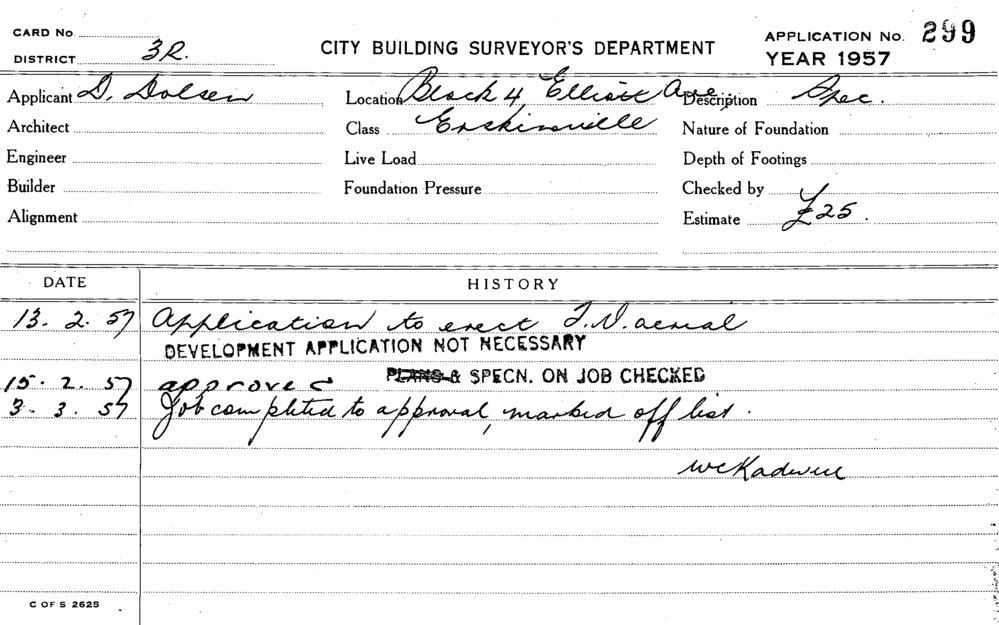 CARD No
CITY BUILDING SURVEYOR'S DEPARTMENT
APPLICATION No. 299
DISTRICT 3R.
YEAR 1957
Applicant D. Dolsen Location Block 4, Elliott Ave, Description Spec.
Architect Class Erskineville Nature of Foundation
Engineer Live Load Depth of Footings
Builder Foundation Pressure Checked by
Alignment Estimate £25.
DATE HISTORY
13. 2. 57 Application to erect T.V. aerial
DEVELOPMENT APPLICATION NOT NECESSARY
15. 2. 57 approved PLANS & SPECN. ON JOB CHECKED
3. 3. 57 Job completed to approval, marked off list.
C OF S 2625